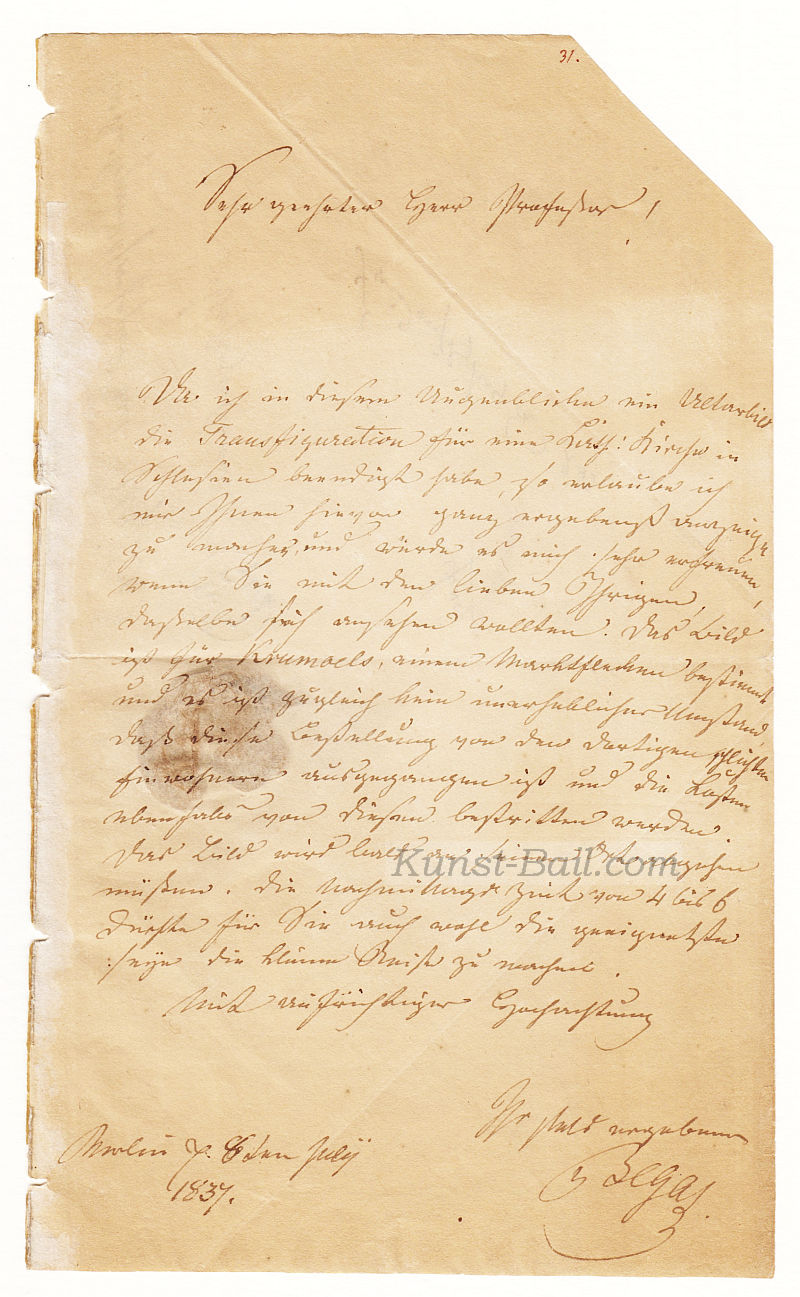 31.
Sehr geehrter Herr Professor,
Da ich in diesem Augenblicke ein Altarbild
die Transfiguration für eine Kath: Kirche in
Schlesien beendigt habe, so erlaube ich
mir Ihnen hievon ganz ergebenst anzeige
zu machen, und würde es mich sehr erfreuen,
wenn Sie mit den lieben Ihrigen,
dasselbe sich ansehen wollten. Das Bild
ist für Krumoels, einem Marktflecken bestimmt
und es ist zugleich kein unerheblicher Umstand,
daß diese Bestellung von den dortigen schlichten
Einwohnern ausgegangen ist und die Kosten
ebenfals von diesen bestritten werden.
Das Bild wird bald an seinen Ort abgehen
müßen. Die Nachmittags Zeit von 4 bis 6
dürfte für Sie auch wohl die geeignetste
seyn die kleine Reise zu machen.
Mit aufrichtiger Hochachtung
Ihr stets ergebener
Begas
Berlin d. 6ten July
1837.
Kunst-Ball.com